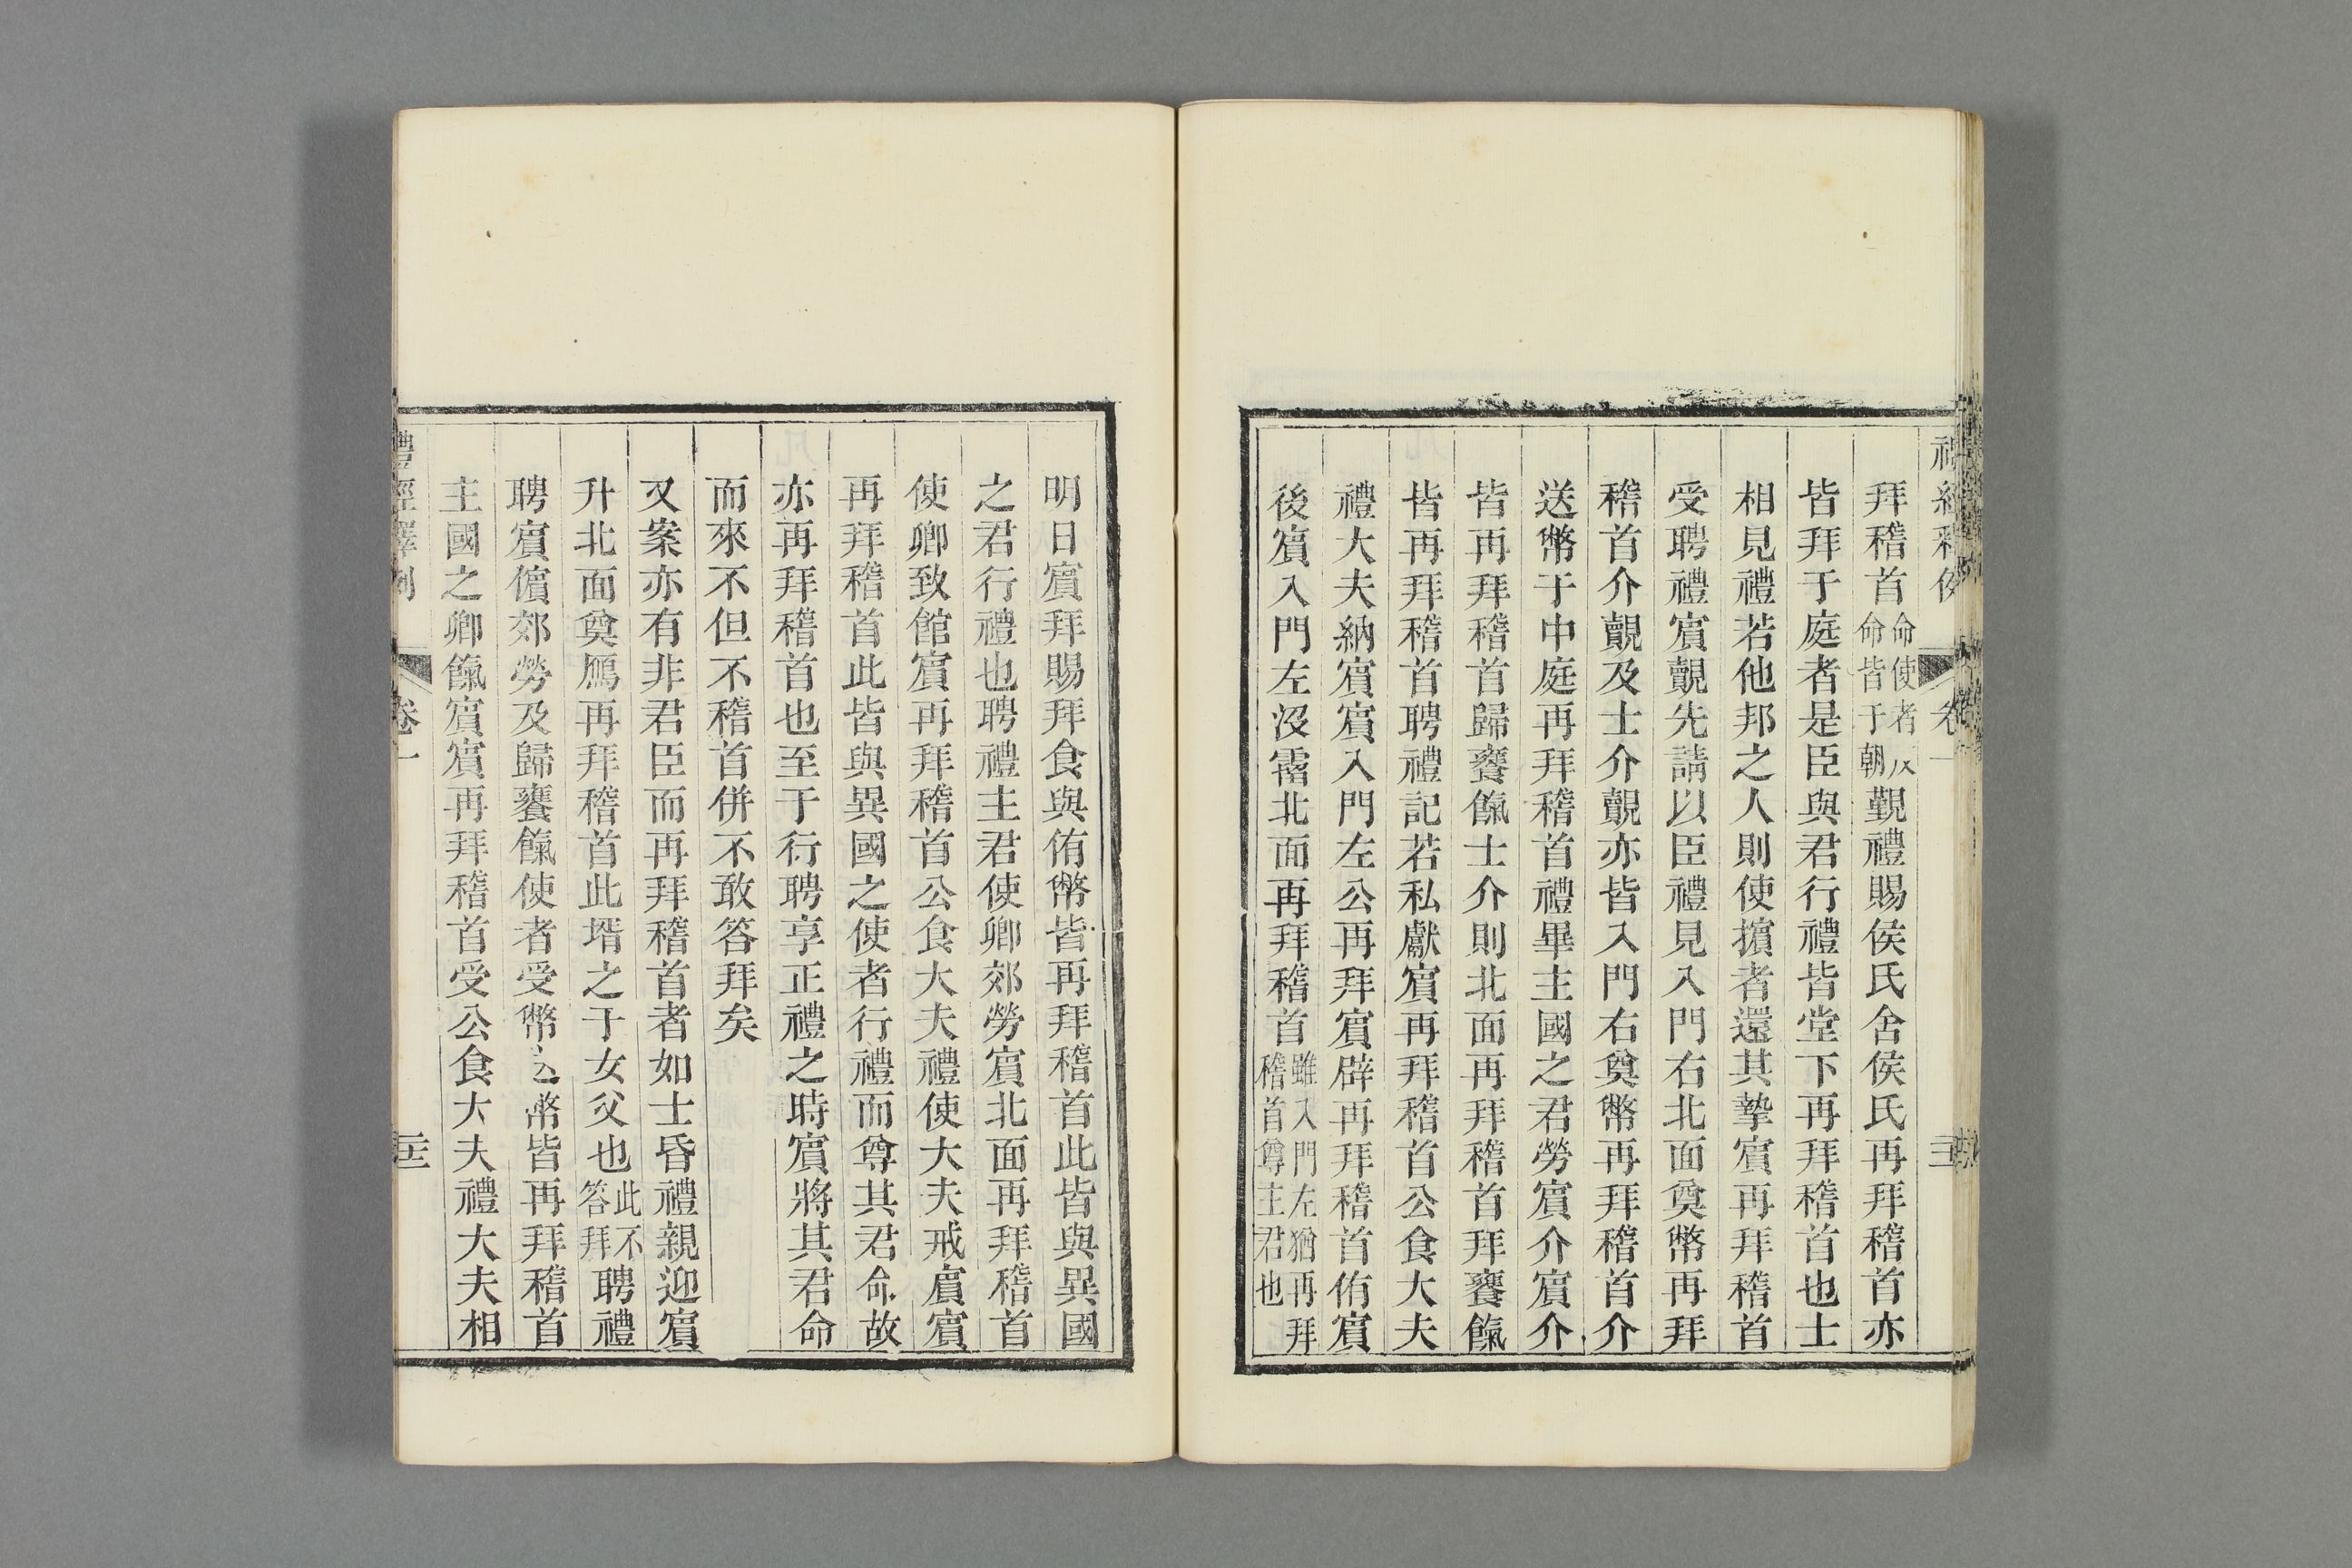 拜稽首命使者反命皆于朝覲禮賜侯氏舍侯氏再拜稽首亦
皆拜于庭者是臣與君行禮皆堂下再拜稽首也士
相見禮若他邦之人則使擯者還其摯賓再拜稽首
受聘禮賓覿先請以臣禮見入門右北面奠幣再拜
稽首介覿及士介覿亦皆入門右奠幣再拜稽首介
送幣于中庭再拜稽首禮畢主國之君勞賓介賓介
皆再拜稽首歸饔餼士介則北面再拜稽首拜饔餼
皆再拜稽首聘禮記若私獻賓再拜稽首公食大夫
禮大夫納賓賓入門左公再拜賓辟再拜稽首侑賓
後賓入門左沒霤北面再拜稽首雖入門左猶再拜稽首尊主君也
明日賓拜賜拜食與侑幣皆再拜稽首此皆與異國
之君行禮也聘禮主君使卿郊勞賓北面再拜稽首
使卿致館賓再拜稽首公食大夫禮使大夫戒賓賓
再拜稽首此皆與異國之使者行禮而尊其君命故
亦再拜稽首也至于行聘享正禮之時賓將其君命
而來不但不稽首併不敢答拜矣
又案亦有非君臣而再拜稽首者如士昏禮親迎賓
升北面奠鴈再拜稽首此壻之于女父也此不答拜聘禮
聘賓儐郊勞及歸饔餼使者受幣送幣皆再拜稽首
主國之卿餼賓賓再拜稽首受公食大夫禮大夫相
禮經釋例
卷一